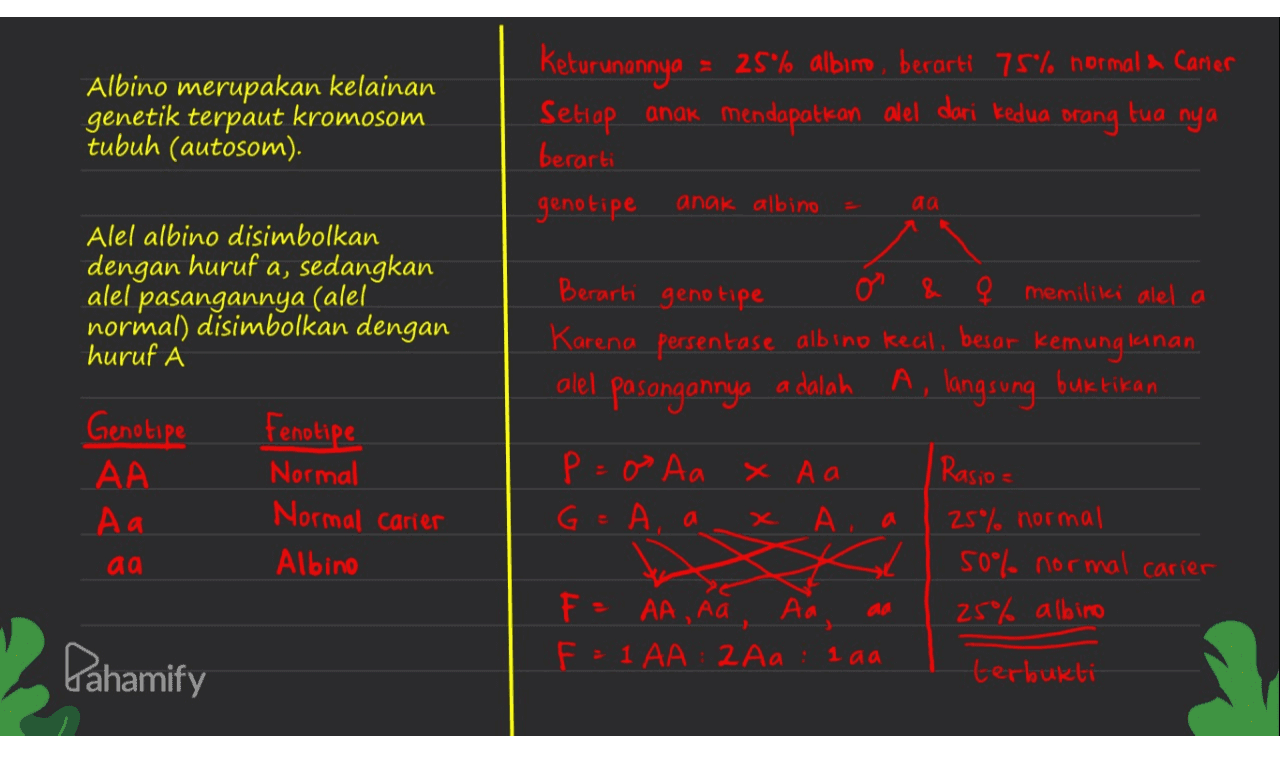 Albino merupakan kelainan
genetik terpaut kromosom
tubuh (autosom).
Alel albino disimbolkan
dengan huruf a, sedangkan
alel pasangannya (alel
normal) disimbolkan dengan
huruf A
Genotipe Fenotipe
AA Normal
Aa Normal carier
aa Albino
Pahamify
Keturunannya = 25% albino, berarti 75% normal & Carier
Setiap anak mendapatkan alel dari kedua orang tua nya
berarti
genotipe anak albino = aa
Berarti genotipe ♂ & ♀ memiliki alel a
Karena persentase albino kecil, besar kemungkinan
alel pasangannya adalah A, langsung buktikan
P = ♂ Aa × Aa
G = A, a × A, a
F = AA, Aa, Aa, aa
F = 1 AA : 2 Aa : 1 aa
Rasio =
25% normal
50% normal carier
25% albino
terbukti